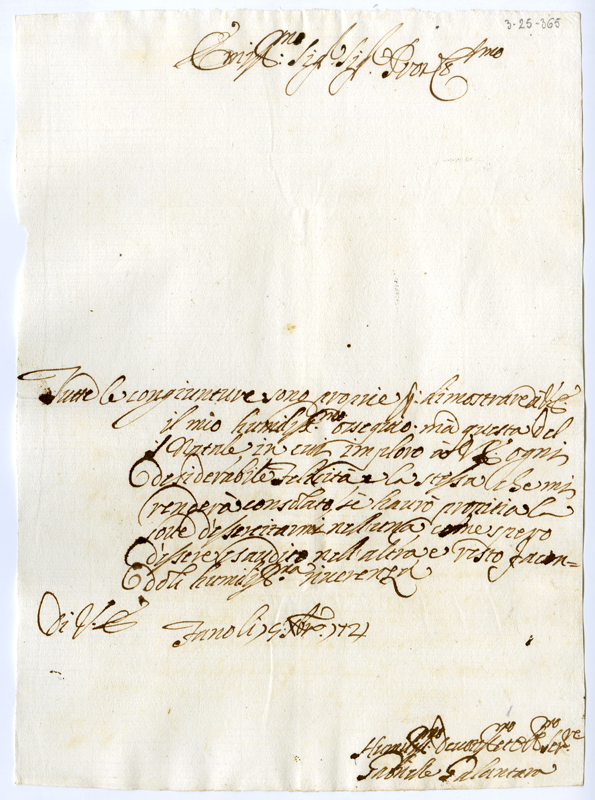 3-25-365
Emin.mo Sig.r Sig.r Pron Col.mo
Tutte le congiunture sono proprie p. dimostrare à V.E.
il mio humiliss.mo ossequio mà questa del
S. Natale in cui imploro à V.E. ogni
desiderabile felicità e la stessa, che mi
renderà consolato, se haurò propitia la
sorte di essercitarmi nell'una come spero
d'essere esaudito nell'altra e resto facen=
doli humiliss.ma riuerenza
Di V.E.
Fano li 15 Xbre 1721
Humiliss.mo Deuotiss.mo et Obl.mo Ser.re
Gabriele Galantara